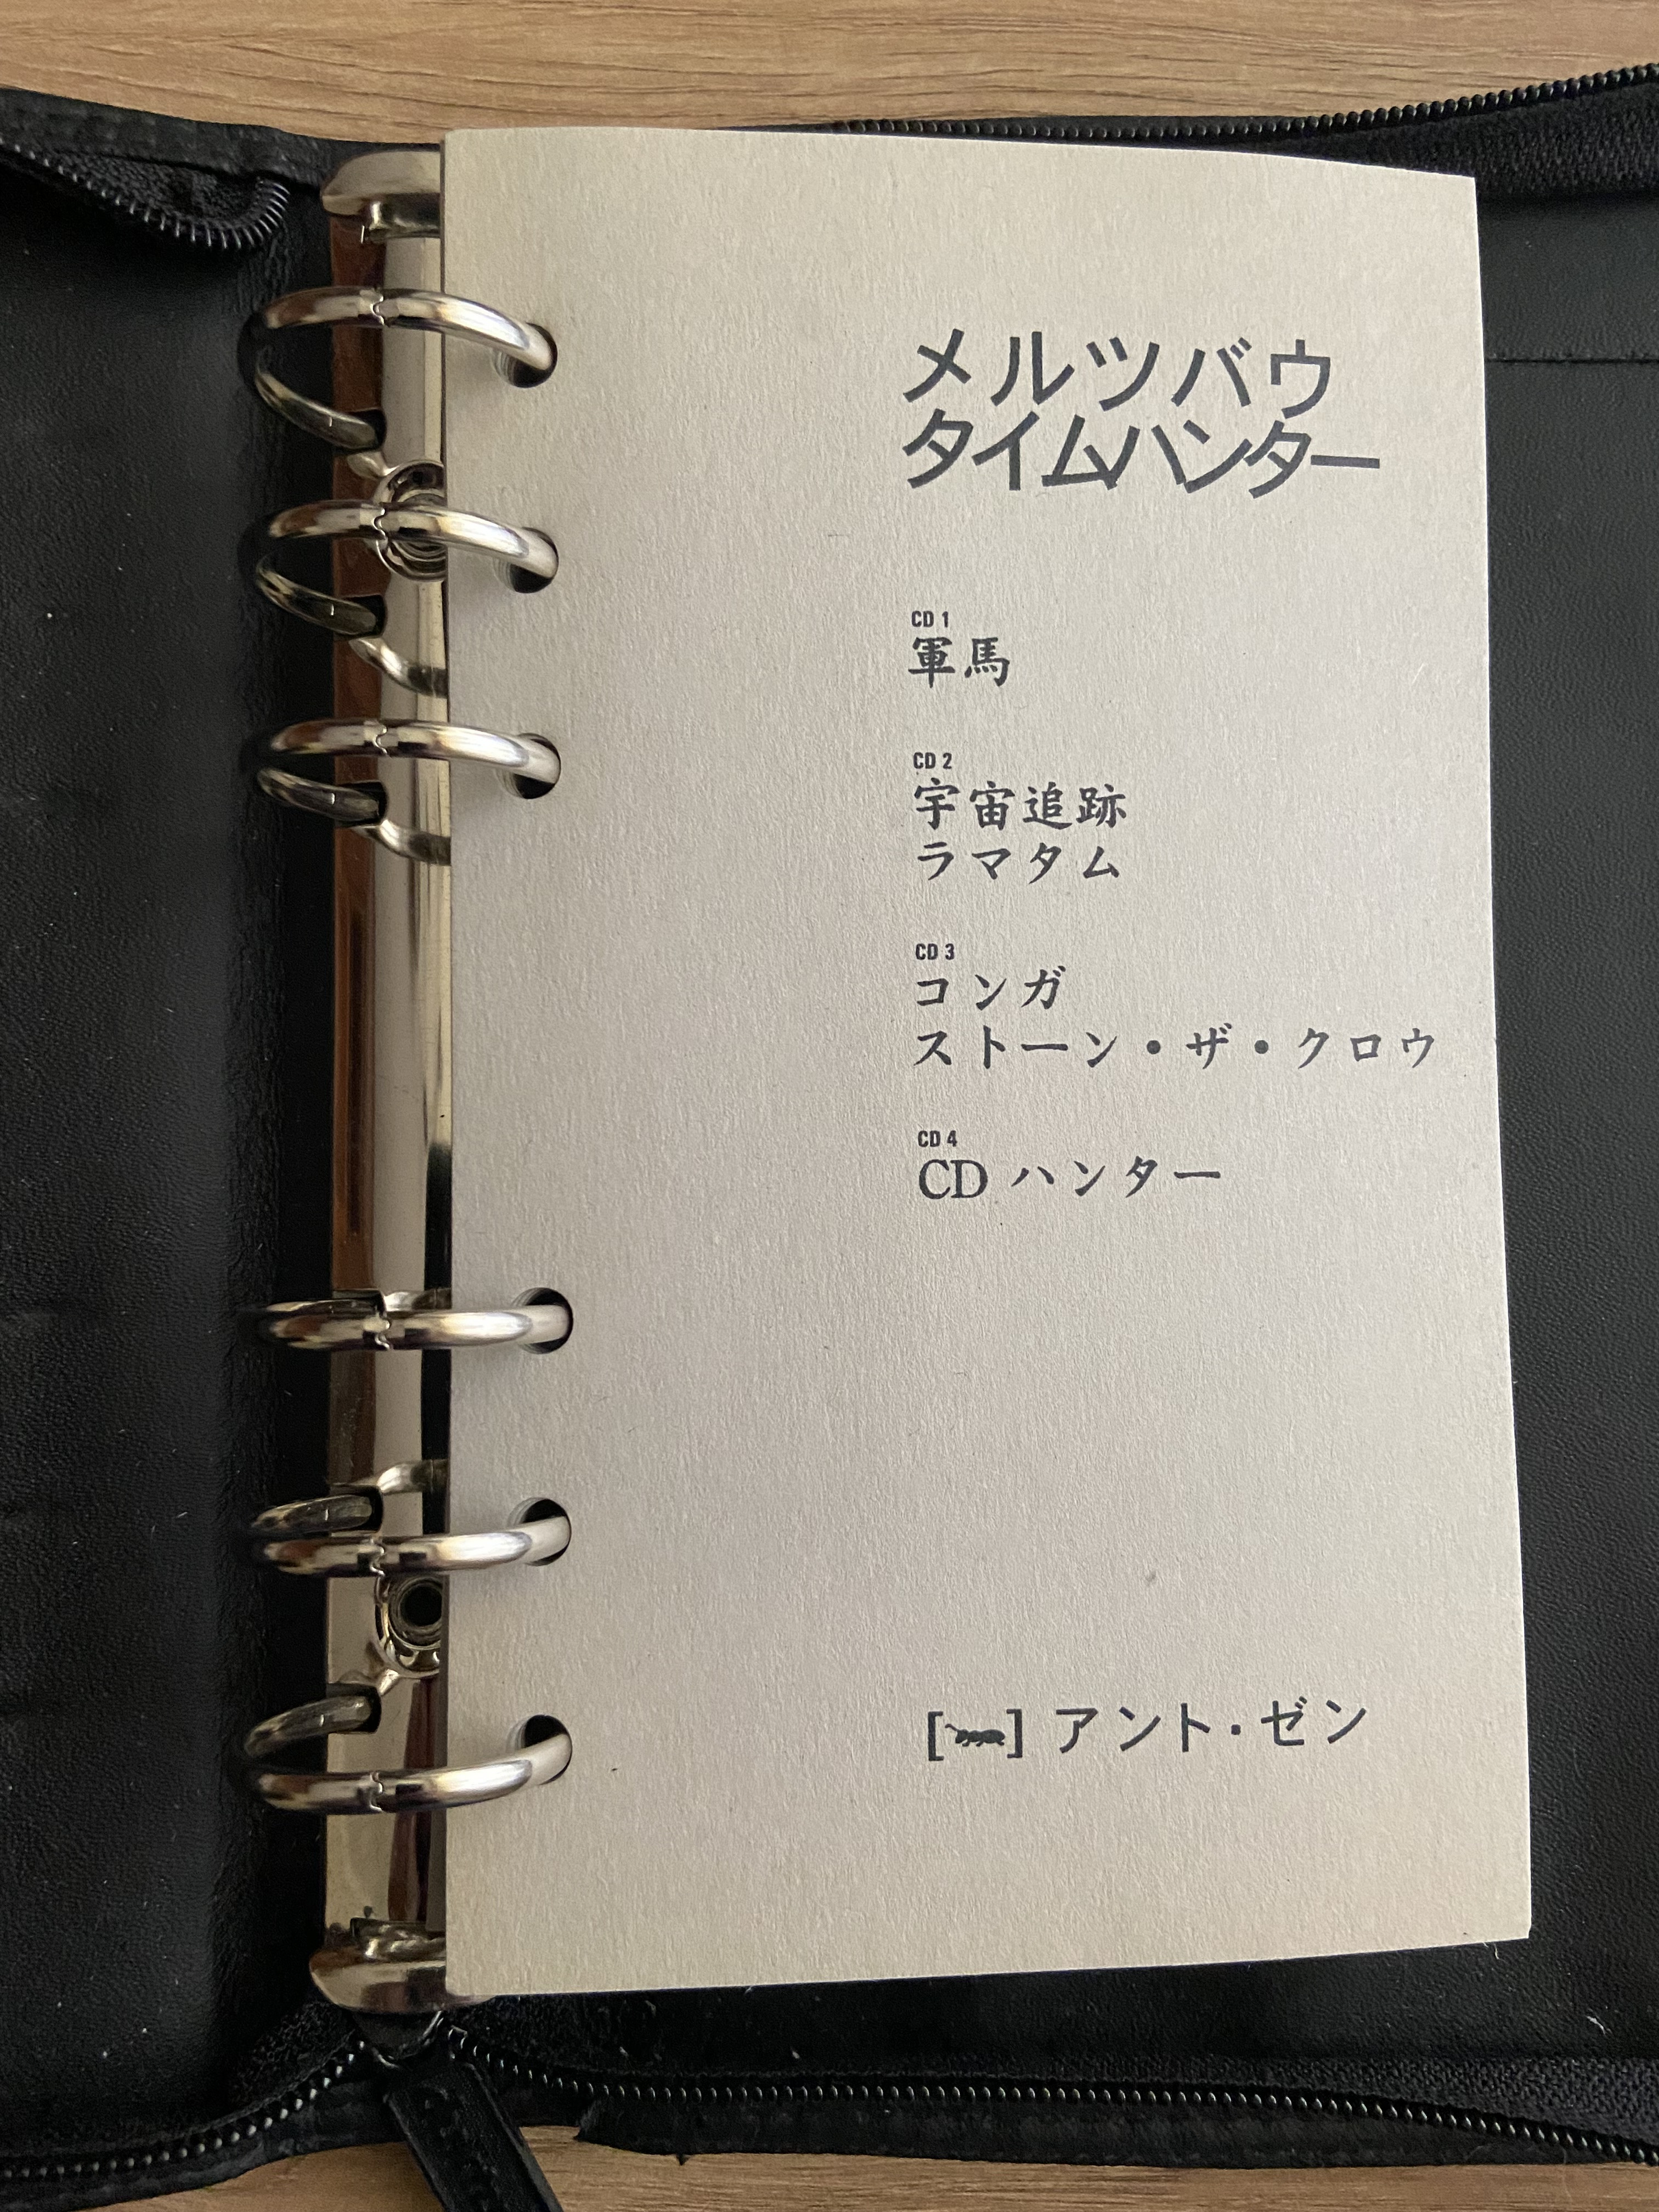 メルツバウ
タイムハンター
CD 1
軍馬
CD 2
宇宙追跡
ラマタム
CD 3
コンガ
ストーン・ザ・クロウ
CD 4
CD ハンター
[ ] アント・ゼン